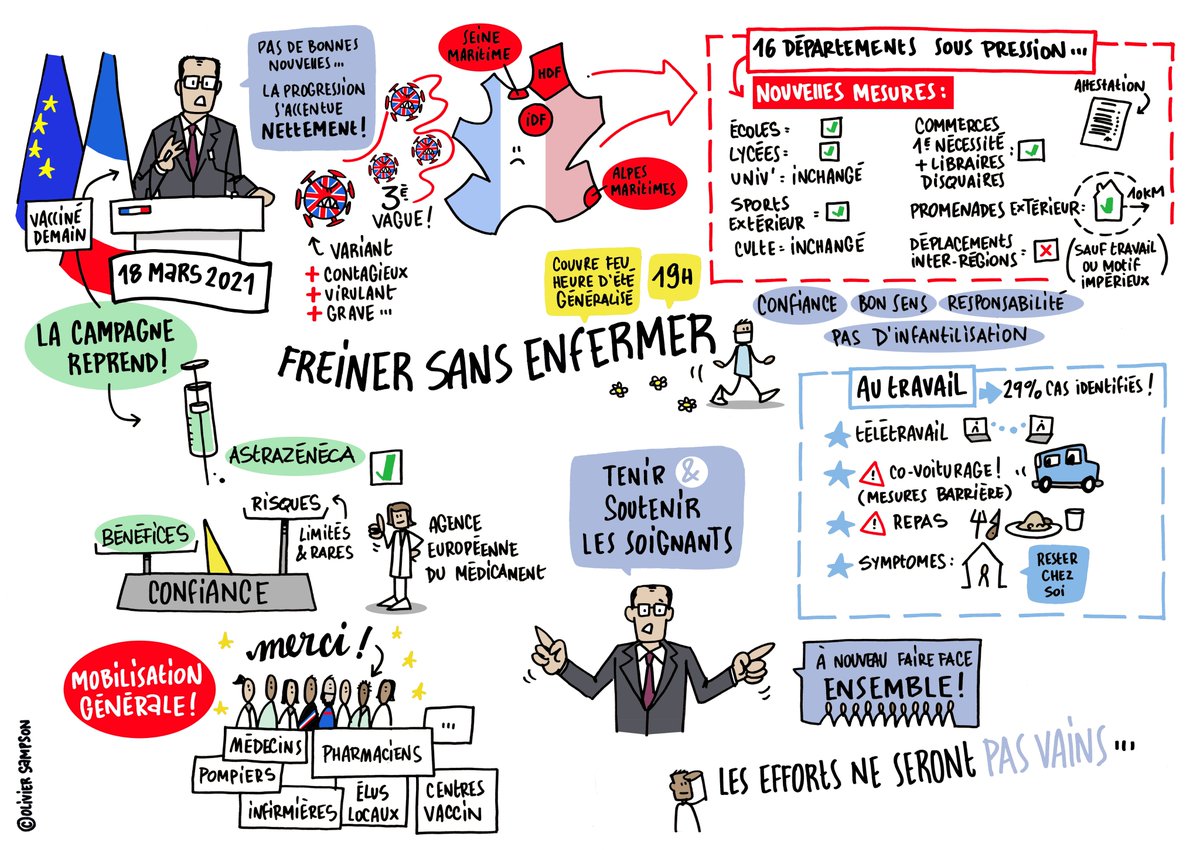 PAS DE BONNES
NOUVELLES...
LA PROGRESSION
S'ACCENTUE
NETTEMENT!
VACCINÉ
DEMAIN
18 MARS 2021
3È
VAGUE!
VARIANT
+ CONTAGIEUX
+ VIRULANT
+ GRAVE ...
SEINE
MARITIME
HDF
IDF
ALPES
MARITIMES
16 DÉPARTEMENTS SOUS PRESSION...
NOUVELLES MESURES:
ÉCOLES =
LYCÉES =
UNIV' = INCHANGÉ
SPORTS
EXTÉRIEUR =
CULTE = INCHANGÉ
COMMERCES
1E NÉCESSITÉ
+ LIBRAIRES
DISQUAIRES
=
ATTESTATION
PROMENADES EXTÉRIEUR =
10KM
DÉPLACEMENTS
INTER-RÉGIONS =
(SAUF TRAVAIL
OU MOTIF
IMPÉRIEUX)
COUVRE FEU
HEURE D'ÉTÉ
GÉNÉRALISÉ
19H
CONFIANCE
BON SENS
RESPONSABILITÉ
PAS D'INFANTILISATION
FREINER SANS ENFERMER
LA CAMPAGNE
REPREND!
ASTRAZÉNÉCA
RISQUES
BÉNÉFICES
LIMITÉS
& RARES
CONFIANCE
AGENCE
EUROPÉENNE
DU MÉDICANENT
TENIR &
SOUTENIR
LES SOIGNANTS
AU TRAVAIL
29% CAS IDENTIFIÉS!
TÉLÉTRAVAIL
CO-VOITURAGE!
(MESURES BARRIÈRE)
REPAS
SYMPTOMES:
RESTER
CHEZ
SOI
MOBILISATION
GÉNÉRALE!
merci!
MÉDECINS
PHARMACIENS
...
POMPIERS
INFIRMIÈRES
ÉLUS
LOCAUX
CENTRES
VACCIN
À NOUVEAU FAIRE FACE
ENSEMBLE!
LES EFFORTS NE SERONT PAS VAINS ...
©OLIVIER SAMPSON